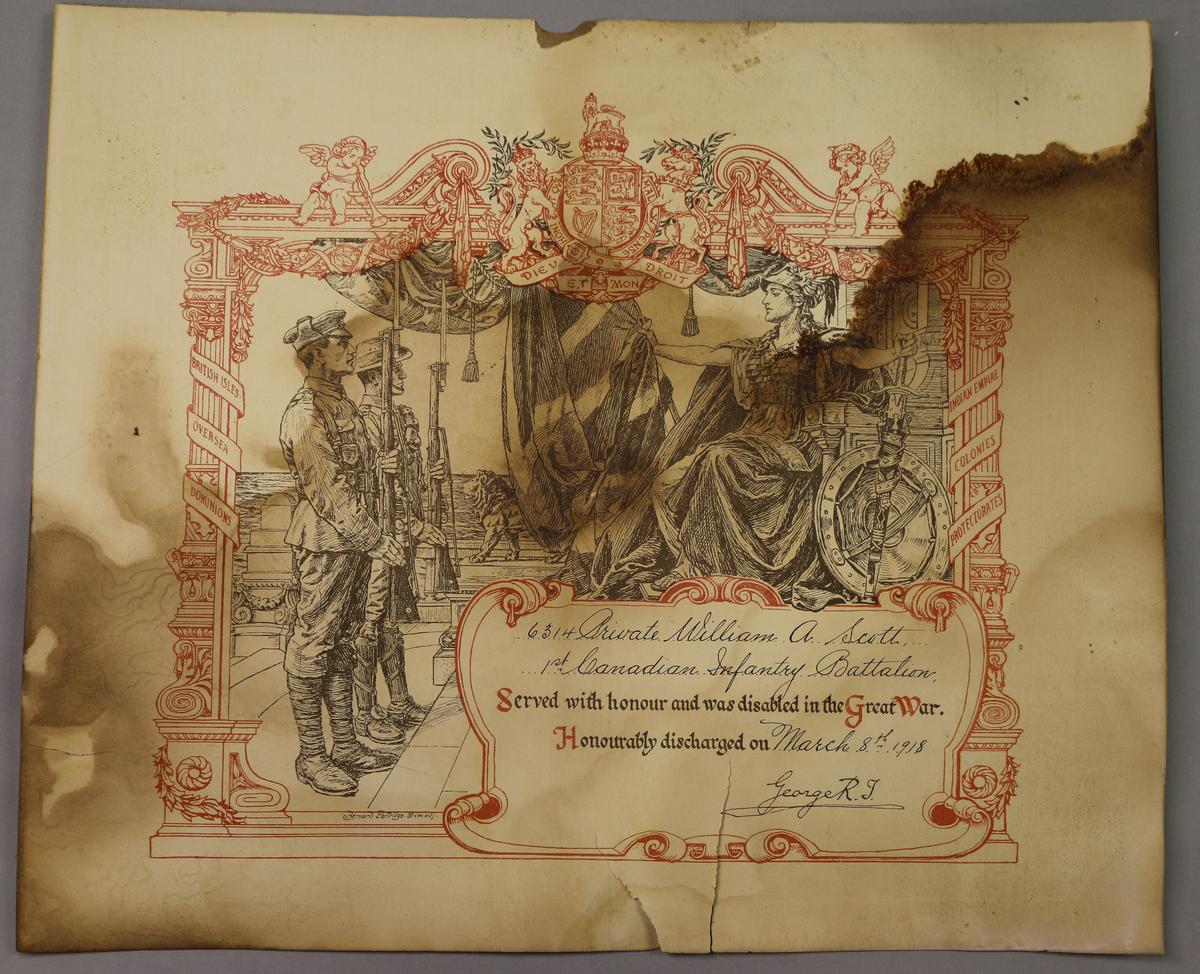 DIEV ET MON DROIT
BRITISH ISLES
OVERSEA
DOMINIONS
INDIAN EMPIRE
COLONIES
&
PROTECTORATES
6314 Private William A. Scott,
1st Canadian Infantry Battalion,
Served with honour and was disabled in the Great War.
Honourably discharged on March 8th 1918
George R.I.
Bernard Partridge